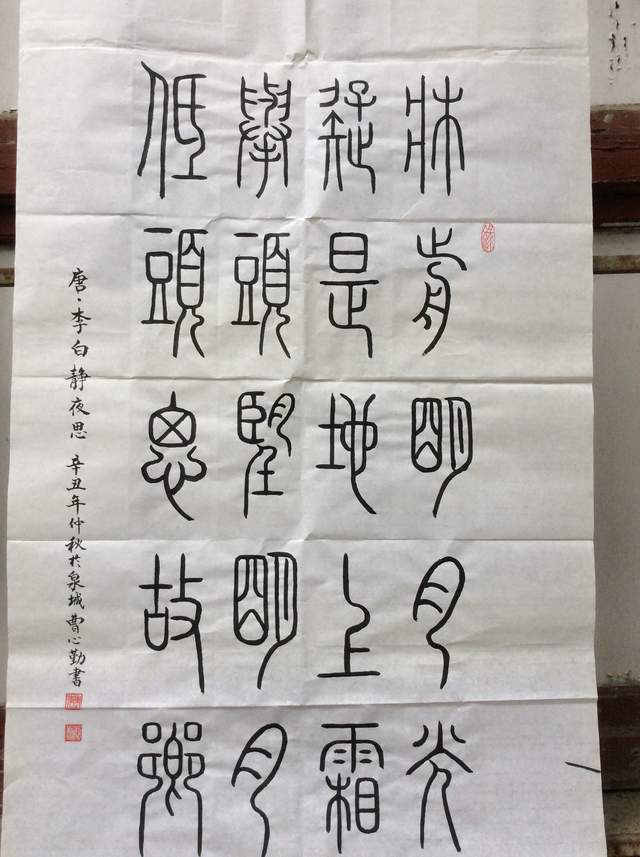 牀前明月光
疑是地上霜
舉頭望明月
低頭思故鄉
唐·李白静夜思 辛丑年仲秋於泉城曹心勤書